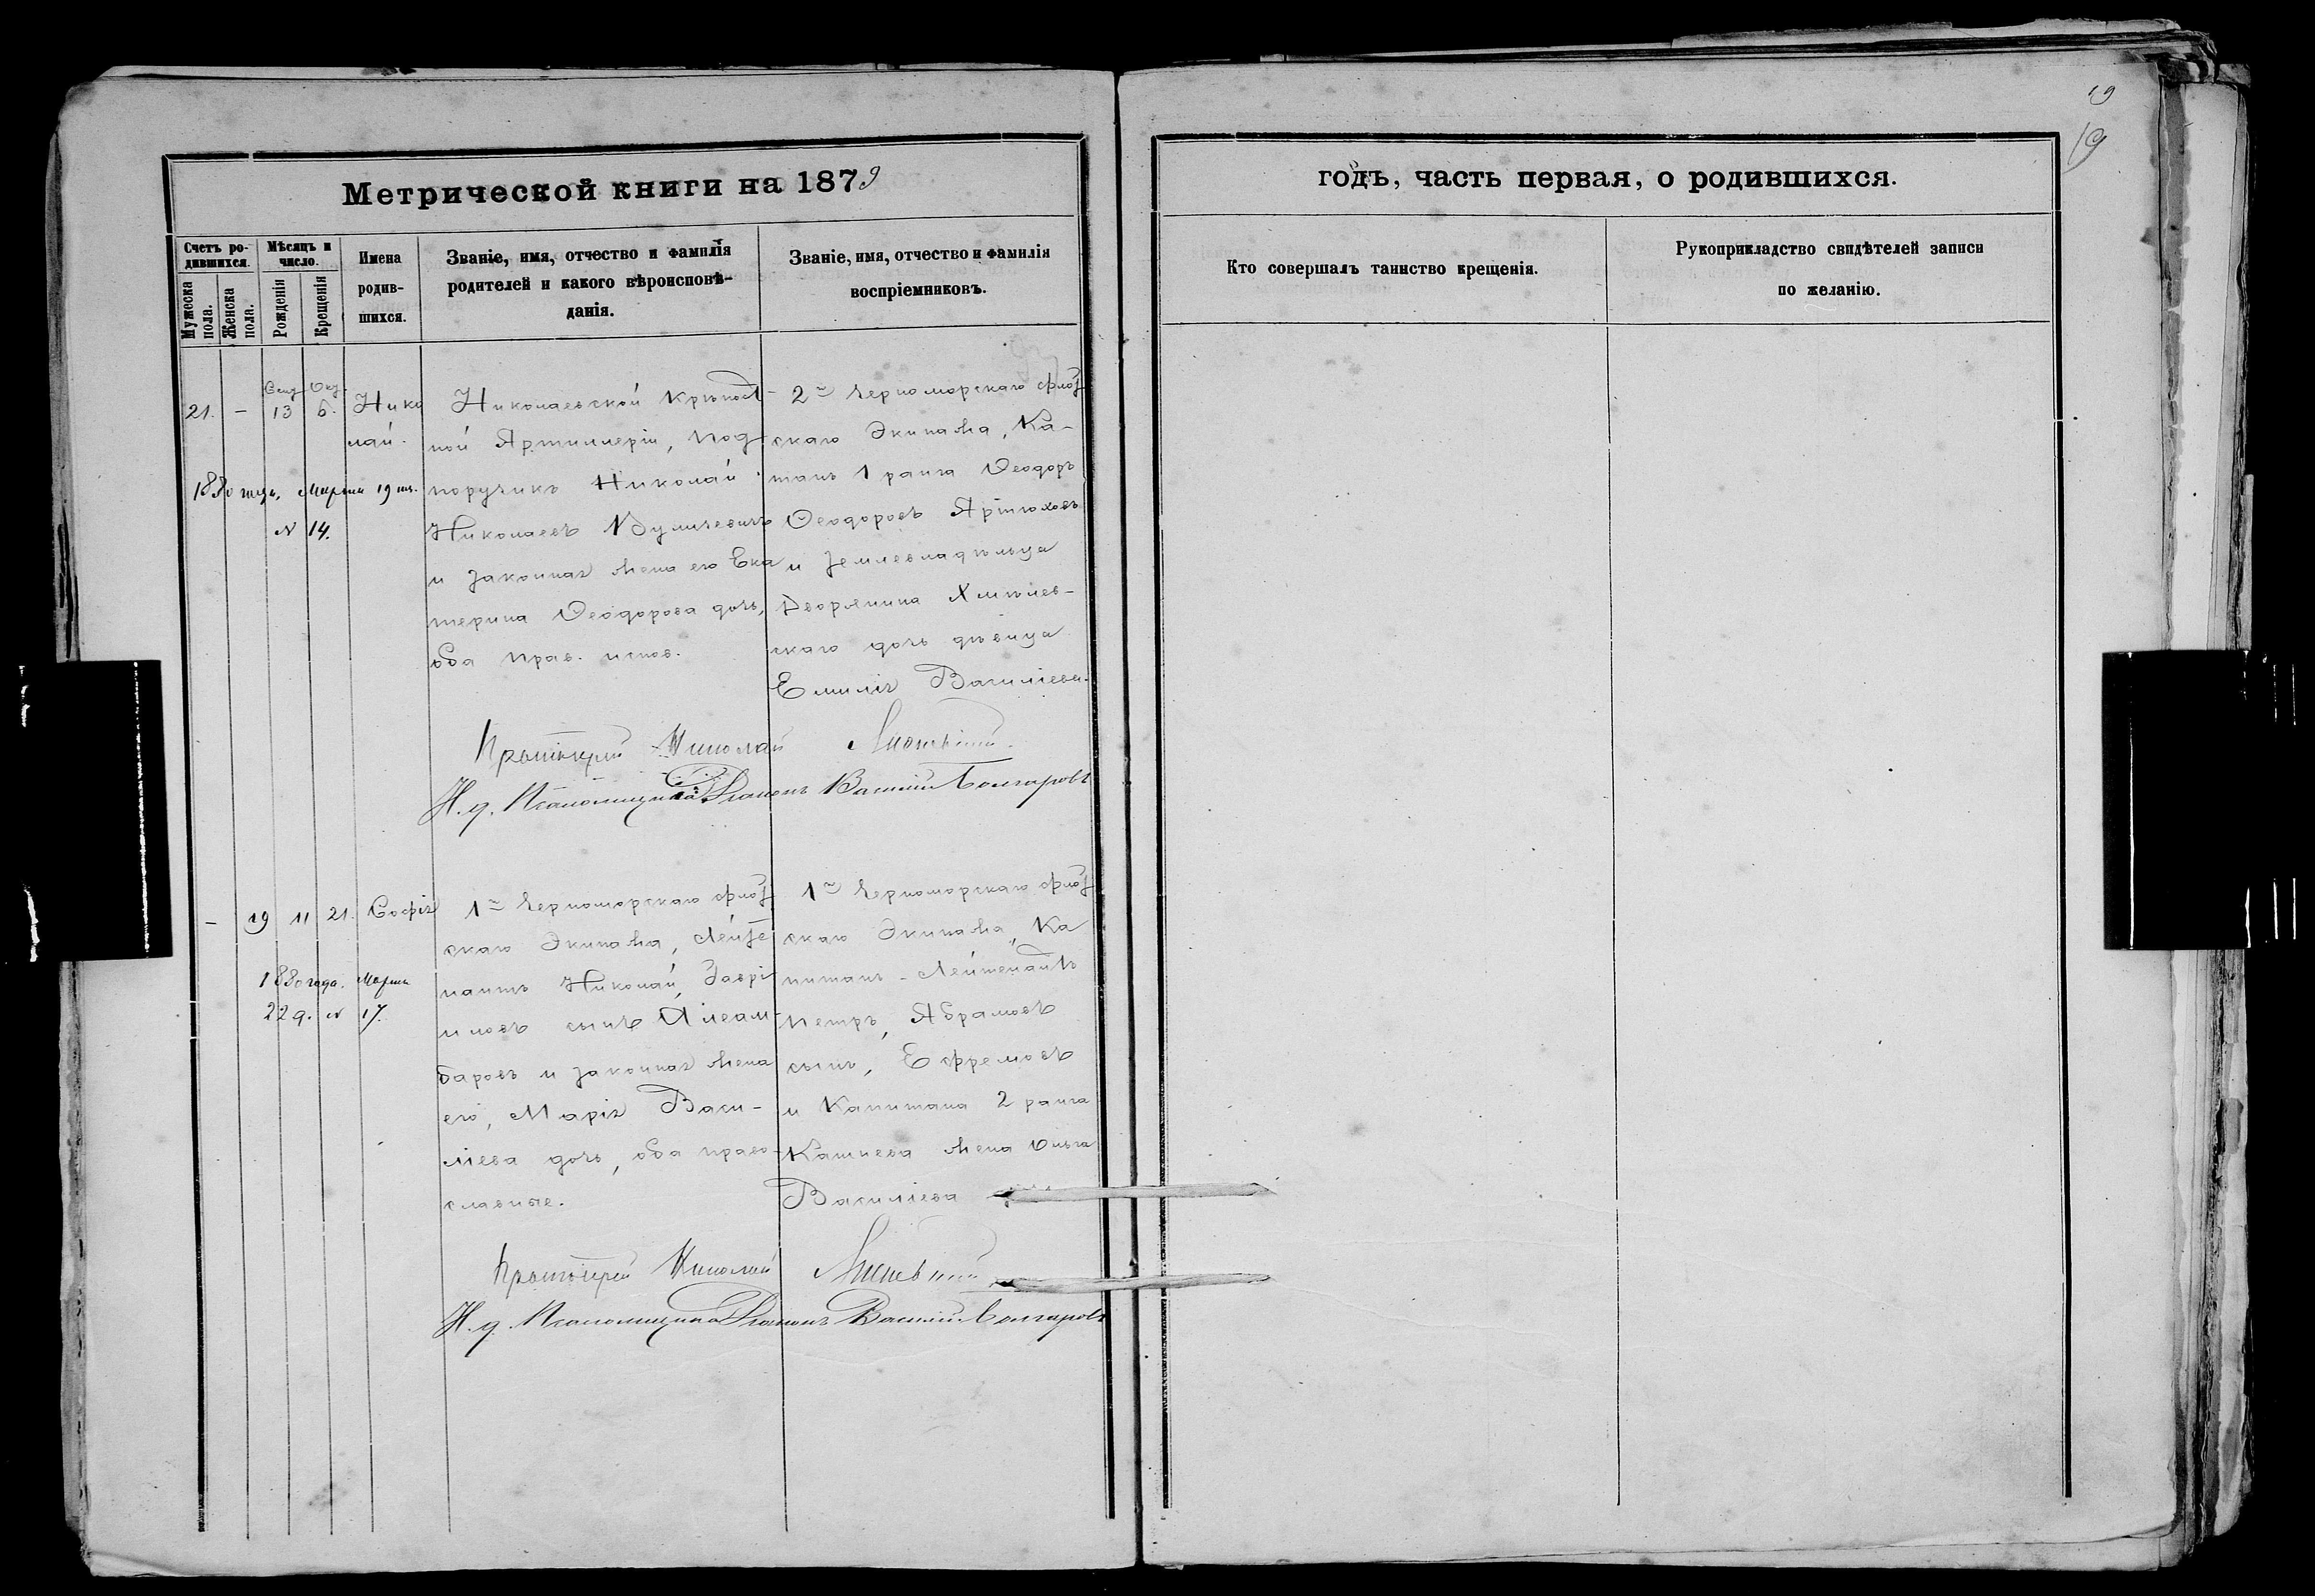 19
19
Метрической книги на 1879
годъ, часть первая, о родившихся.
Счетъ ро-
дившихся.
Мужеска пола.
Женска пола.
Мѣсяцъ и
число.
Рожденія
Крещенія
Имена
родив-
шихся.
Званіе, имя, отчество и фамилія
родителей и какого вѣроисповѣ-
данія.
Званіе, имя, отчество и фамилія
воспріемниковъ.
Кто совершалъ таинство крещенія.
Рукоприкладство свидѣтелей записи
по желанію.
Сент. Окт.
21. – 13 6. Нико
лай.
1880 года, Марта 19
N 14.
Николаевской Крѣпост-
ной Артиллеріи, Под-
поручикъ Николай
Николаевъ
и законная жена его Ека
терина Ѳеодорова дочь,
оба прав. испов.
2го Черноморскаго флот
скаго Экипажа, Ка-
танъ 1 ранга Ѳеодоръ
Ѳеодоровъ Артюховъ
и землевладѣльца
Дворянина Хмѣлев-
скаго дочь дѣвица
Емилія Василіева.
Протоіерей Николай
И. д. Псаломщика Діаконъ Василій Болгаровъ
– 19 11 21. Софія
1880 года. Марта
22 д. N 17.
1го Черноморскаго флот
скаго Экипажа, Лейте
нантъ Николай, Гаврі
иловъ сынъ Алеам-
баровъ и законная жена
его, Марія Васи-
ліева дочь, оба право-
славные.
1го Черноморскаго флот
скаго Экипажа, Ка
питанъ-Лейтенантъ
Петръ, Абрамовъ
сынъ, Ефремовъ
и Капитана 2 ранга
Кашнева жена Ольга
Василіева
Протоіерей Николай
И. д. Псаломщика Діаконъ Василій Болгаровъ